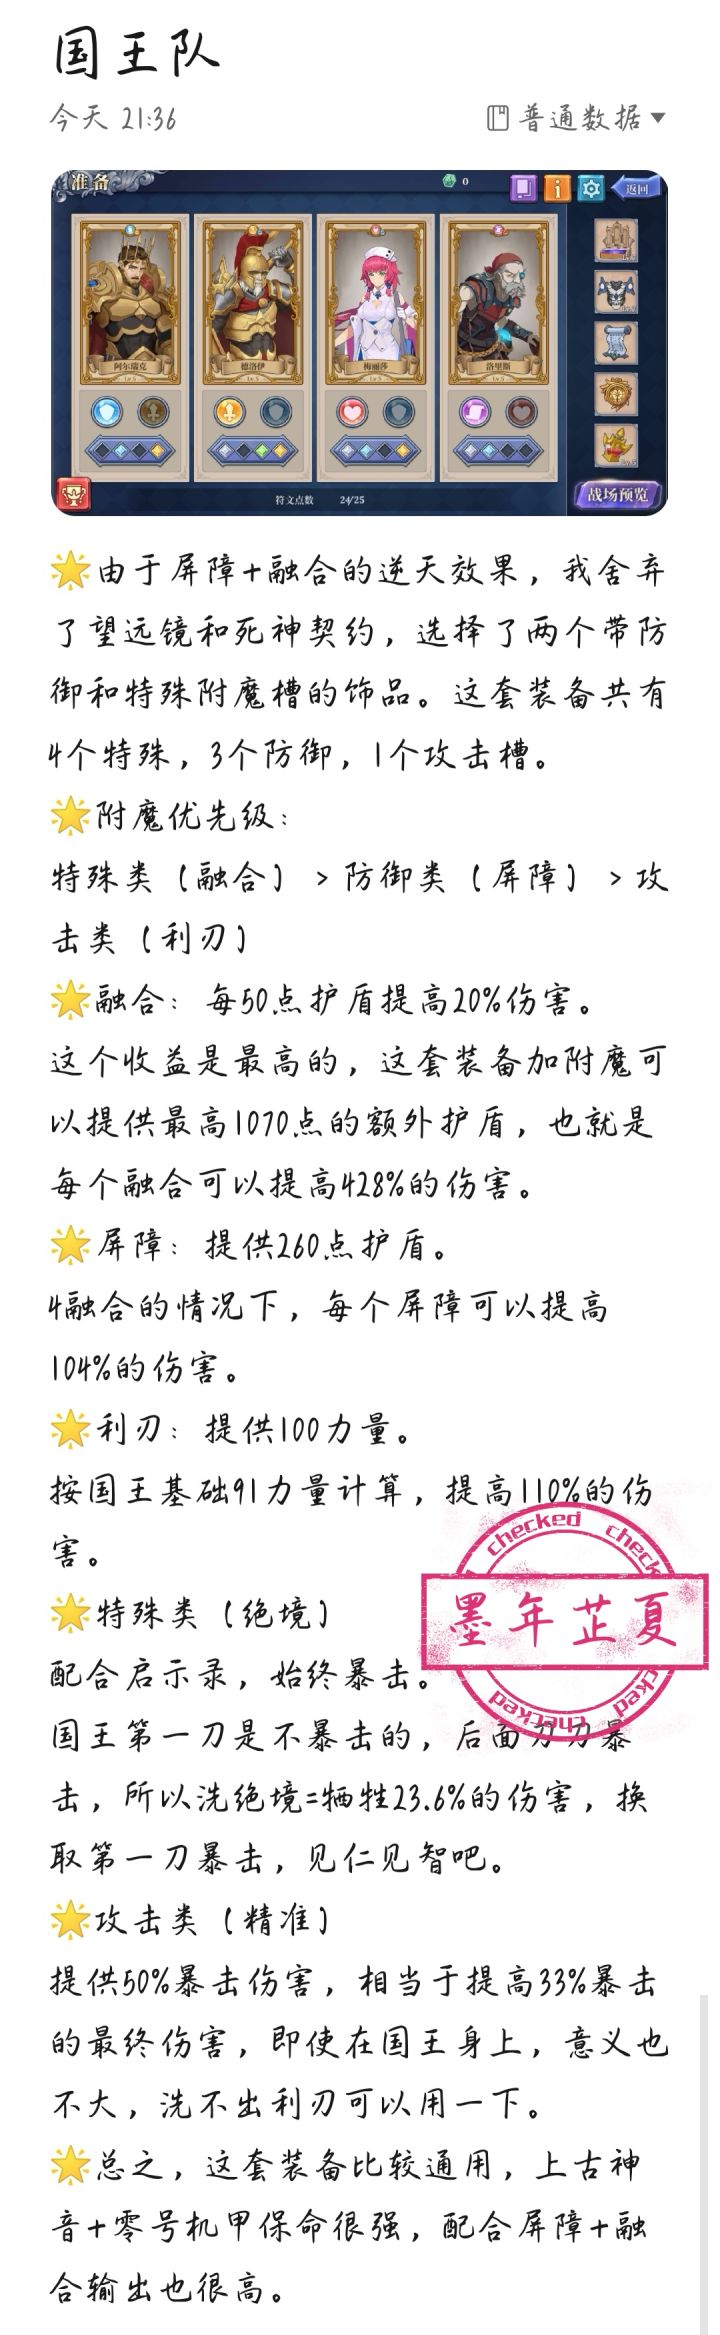 国王队
今天 21:36
普通数据
准备
0
i
返回
阿尔瑞克
德洛伊
梅丽莎
洛里斯
Lv.5
Lv.5
Lv.5
Lv.5
符文点数 24/25
战场预览
🌟由于屏障+融合的逆天效果，我舍弃
了望远镜和死神契约，选择了两个带防
御和特殊附魔槽的饰品。这套装备共有
4个特殊，3个防御，1个攻击槽。
🌟附魔优先级：
特殊类（融合）>防御类（屏障）>攻
击类（利刃）
🌟融合：每50点护盾提高20%伤害。
这个收益是最高的，这套装备加附魔可
以提供最高1070点的额外护盾，也就是
每个融合可以提高428%的伤害。
🌟屏障：提供260点护盾。
4融合的情况下，每个屏障可以提高
104%的伤害。
🌟利刃：提供100力量。
按国王基础91力量计算，提高110%的伤
害。
🌟特殊类（绝境）
配合启示录，始终暴击。
国王第一刀是不暴击的，后面刀刀暴
击，所以洗绝境=牺牲23.6%的伤害，换
取第一刀暴击，见仁见智吧。
🌟攻击类（精准）
提供50%暴击伤害，相当于提高33%暴击
的最终伤害，即使在国王身上，意义也
不大，洗不出利刃可以用一下。
🌟总之，这套装备比较通用，上古神
音+零号机甲保命很强，配合屏障+融
合输出也很高。
checked check
墨年芷夏
checked checked